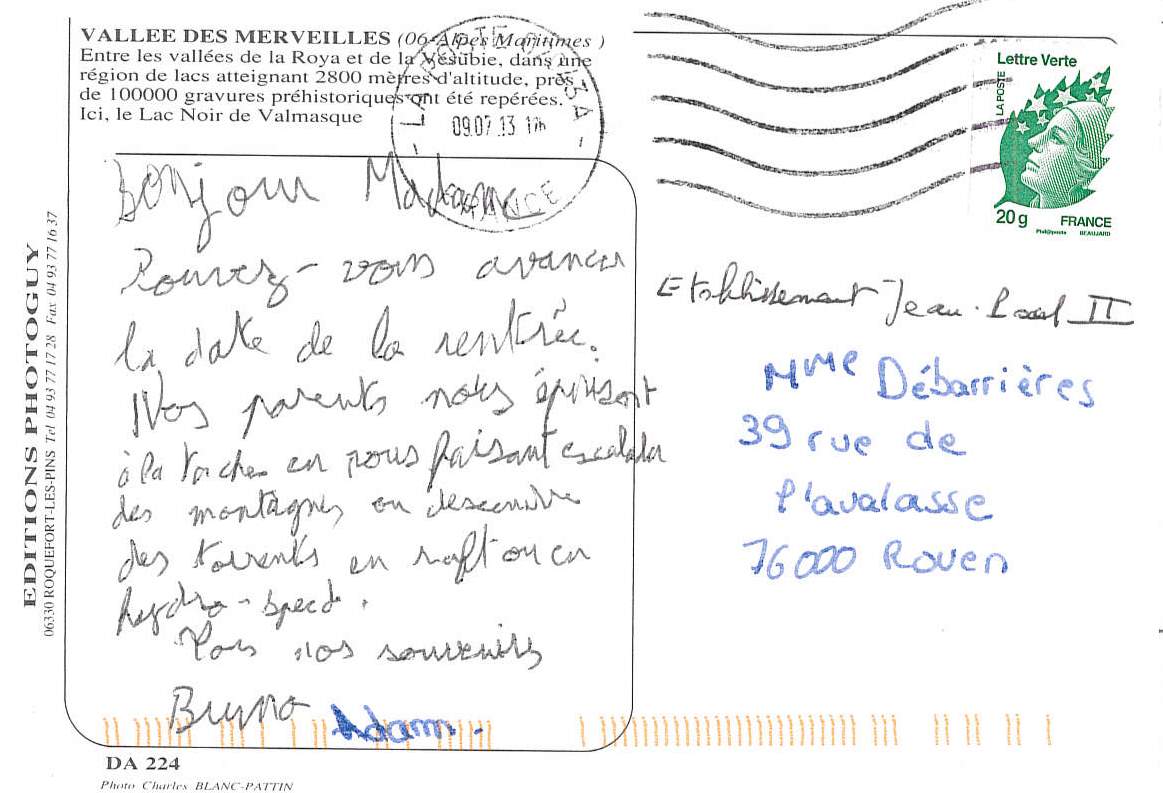 VALLEE DES MERVEILLES (06-Alpes Maritimes )
Entre les vallées de la Roya et de la Vésubie, dans une
région de lacs atteignant 2800 mètres d'altitude, près
de 100000 gravures préhistoriques ont été repérées.
Ici, le Lac Noir de Valmasque
LA POSTE
09.07.13 17h
FRANCE
Lettre Verte
LA POSTE
20 g FRANCE
Phil@poste BEAUJARD
Bonjour Madame
Pouvez-vous avancer
la date de la rentrée.
Nos parents nous épuisent
à la en nous faisant escalader
des montagnes ou descendre
des torrents en raft ou en
hydro-speed.
nos souvenirs
Bruno Adam.
Etablissement Jean-Paul II
Mme Débarrières
39 rue de
l'avalasse
76000 Rouen
EDITIONS PHOTOGUY
06330 ROQUEFORT-LES-PINS Tel 04 93 77 17 28 Fax 04 93 77 16 37
DA 224
Photo Charles BLANC-PATTIN